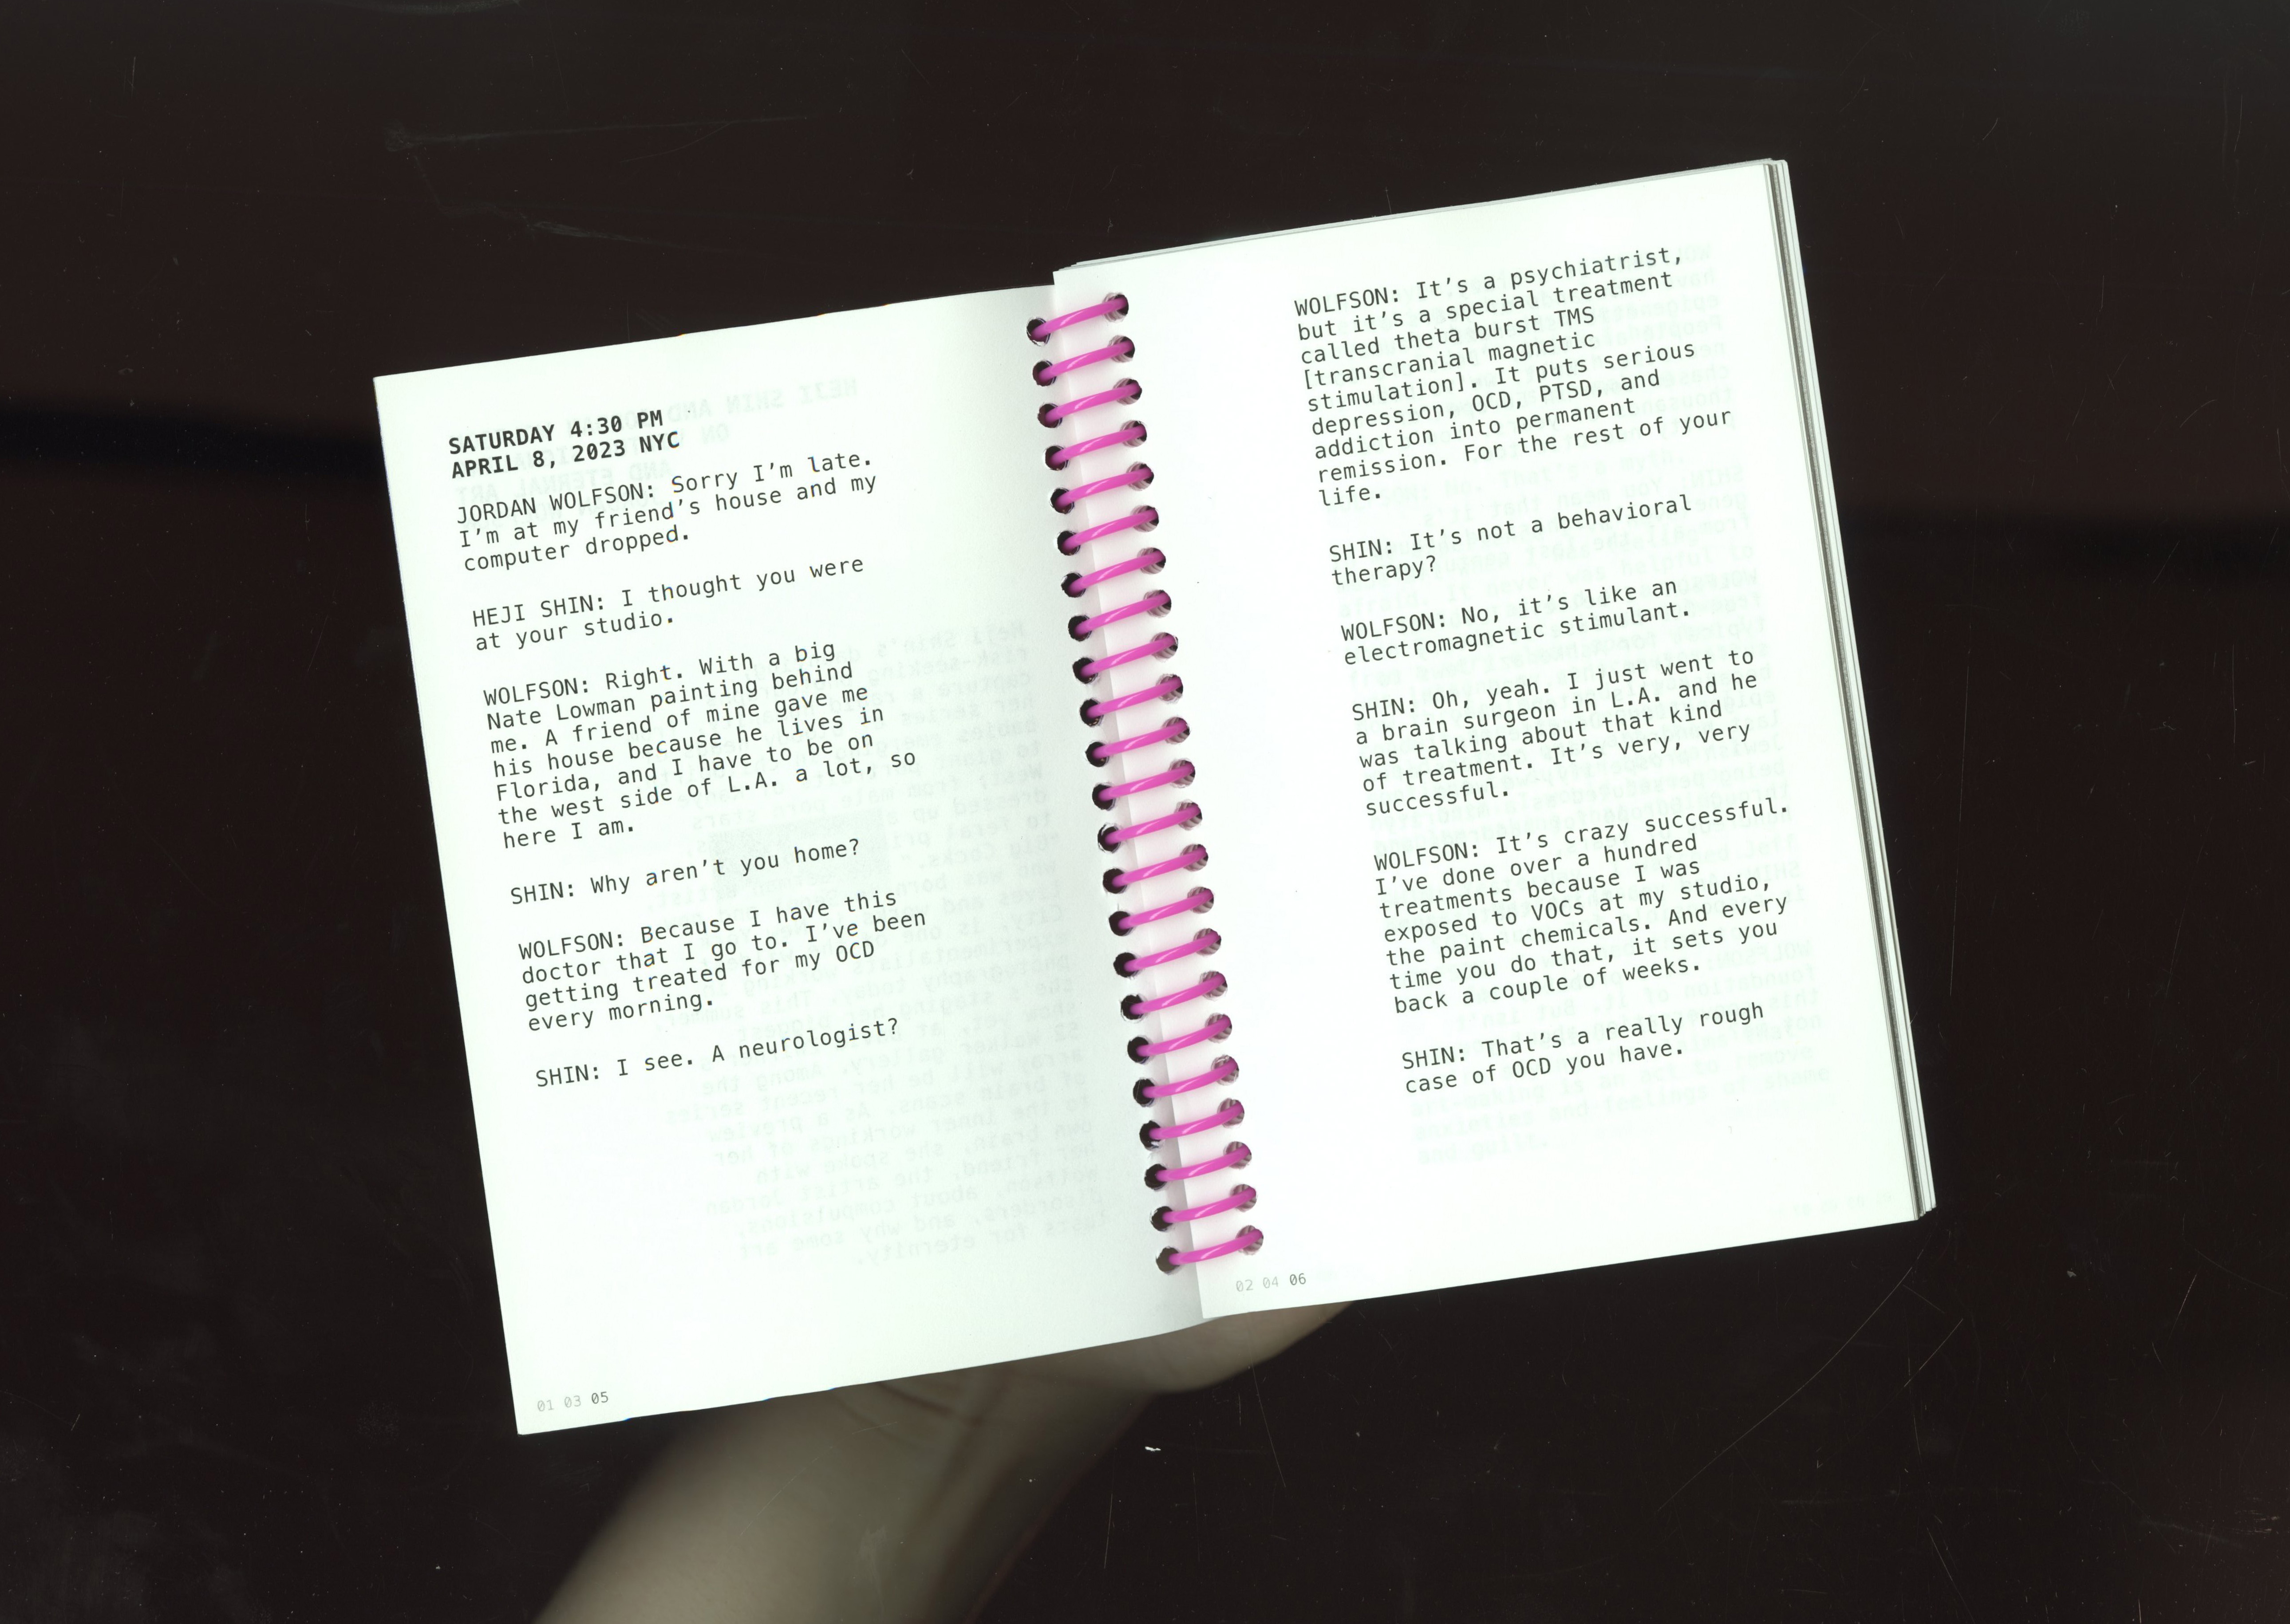 SATURDAY 4:30 PM
APRIL 8, 2023 NYC
JORDAN WOLFSON: Sorry I’m late.
I’m at my friend’s house and my
computer dropped.
HEJI SHIN: I thought you were
at your studio.
WOLFSON: Right. With a big
Nate Lowman painting behind
me. A friend of mine gave me
his house because he lives in
Florida, and I have to be on
the west side of L.A. a lot, so
here I am.
SHIN: Why aren’t you home?
WOLFSON: Because I have this
doctor that I go to. I’ve been
getting treated for my OCD
every morning.
SHIN: I see. A neurologist?
01 03 05
WOLFSON: It’s a psychiatrist,
but it’s a special treatment
called theta burst TMS
[transcranial magnetic
stimulation]. It puts serious
depression, OCD, PTSD, and
addiction into permanent
remission. For the rest of your
life.
SHIN: It’s not a behavioral
therapy?
WOLFSON: No, it’s like an
electromagnetic stimulant.
SHIN: Oh, yeah. I just went to
a brain surgeon in L.A. and he
was talking about that kind
of treatment. It’s very, very
successful.
WOLFSON: It’s crazy successful.
I’ve done over a hundred
treatments because I was
exposed to VOCs at my studio,
the paint chemicals. And every
time you do that, it sets you
back a couple of weeks.
SHIN: That’s a really rough
case of OCD you have.
02 04 06